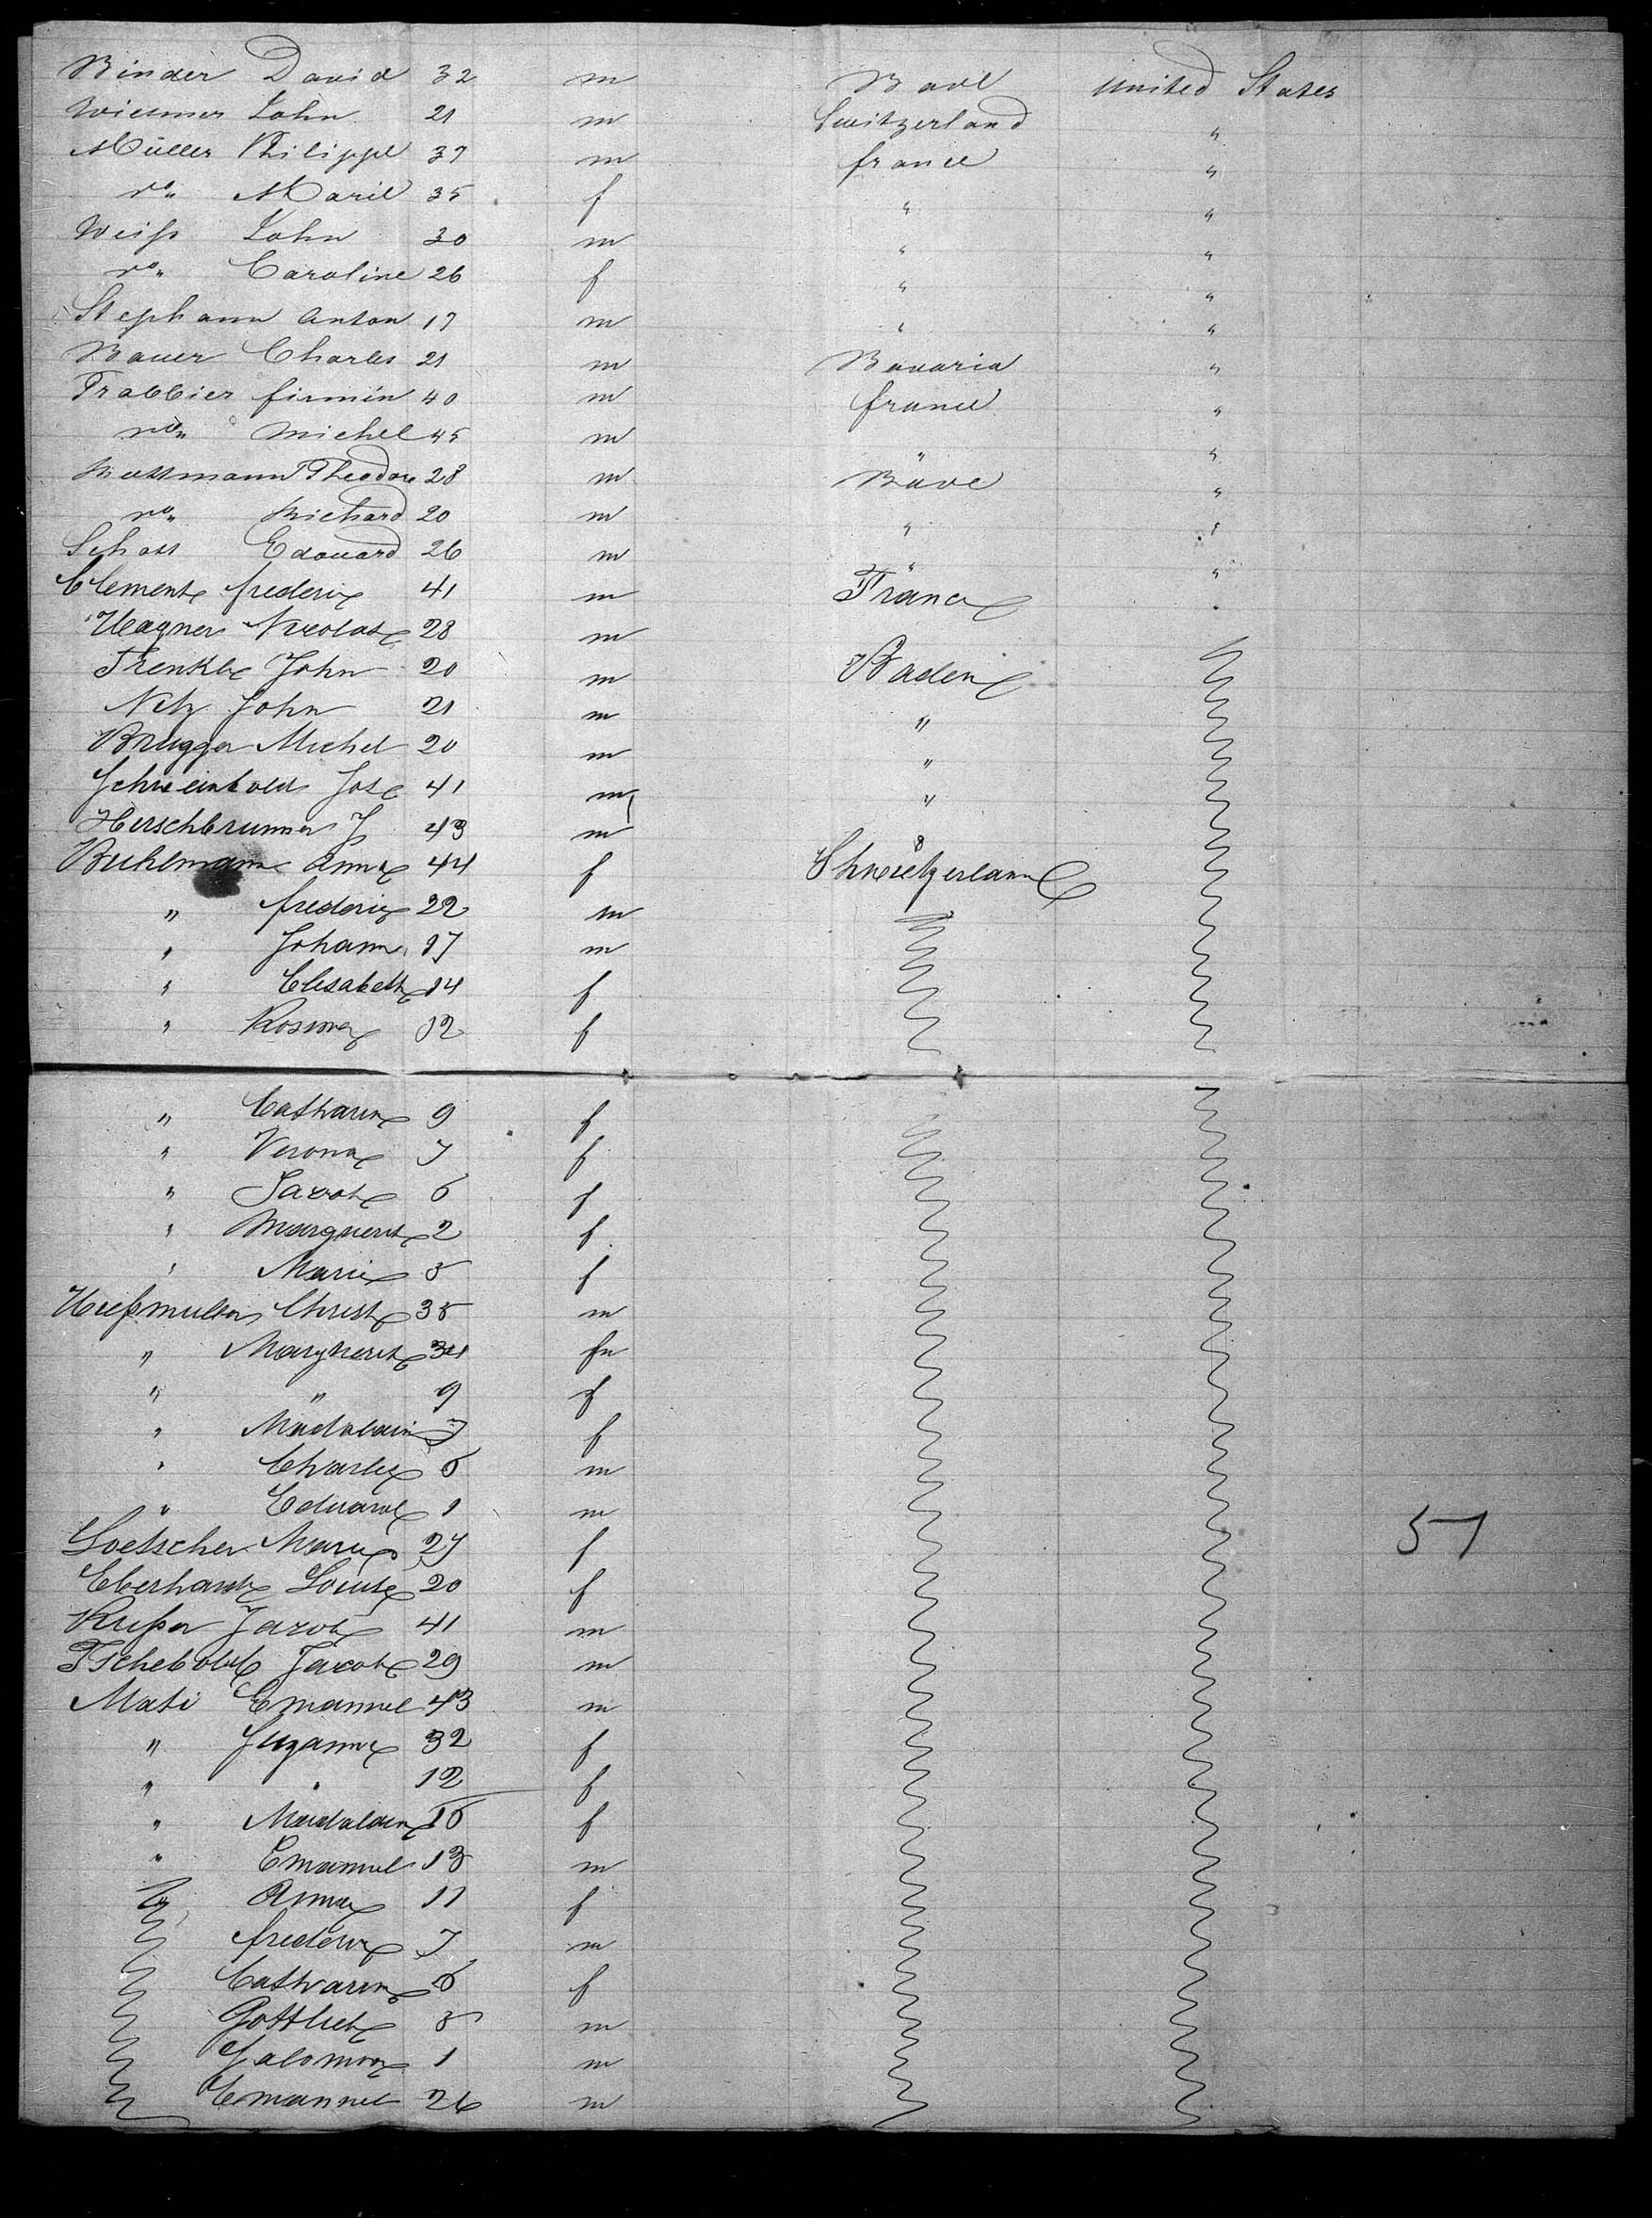 Binder David 32 m Bade United States
Wiesmer John 21 m Switzerland "
Müller Philippe 37 m france "
do " Marie 35 f " "
Weiss John 30 m " "
do " Caroline 26 f " "
Stephann Anton 17 m " "
Bauer Charles 21 m Bavaria "
Trabbier firmin 40 m france "
do " Michel 45 m " "
Theodore 28 m Bade "
do " Richard 20 m " "
Schott Edouard 26 m " "
Clemente frederix 41 m France "
Wagner Nicolas 28 m
Trenkle John 20 m Baden
Netz John 21 m "
Brugger Michel 20 m "
Schweinbold Jos 41 m "
Herschbrunner J 43 m "
Buhlmann Anna 44 f Shweitzerland
" frederiz 22 m
" Johann 17 m
" Elisabeth 14 f
" Rosina 12 f
" Catharin 9 f
" Verona 7 f
" Jacob 6 f
" Marguerit 2 f
" Marie 5 f
Christ 35 m
" Marguerit 34 f
" " 9 f
" Madalain 7 f
" Charles 6 m
" Eduard 1 m
Loetscher Marie 27 f
51
Eberhardt Louise 20 f
Jacob 41 m
Tschebold Jacob 29 m
Mati Emannuel 43 m
" Suzanna 32 f
" " 12 f
" Madalain 16 f
" Emanuel 13 m
" Anna 11 f
frederiz 7 m
Catharin 6 f
Gottlieb 5 m
Salomon 1 m
Emannuel 26 m